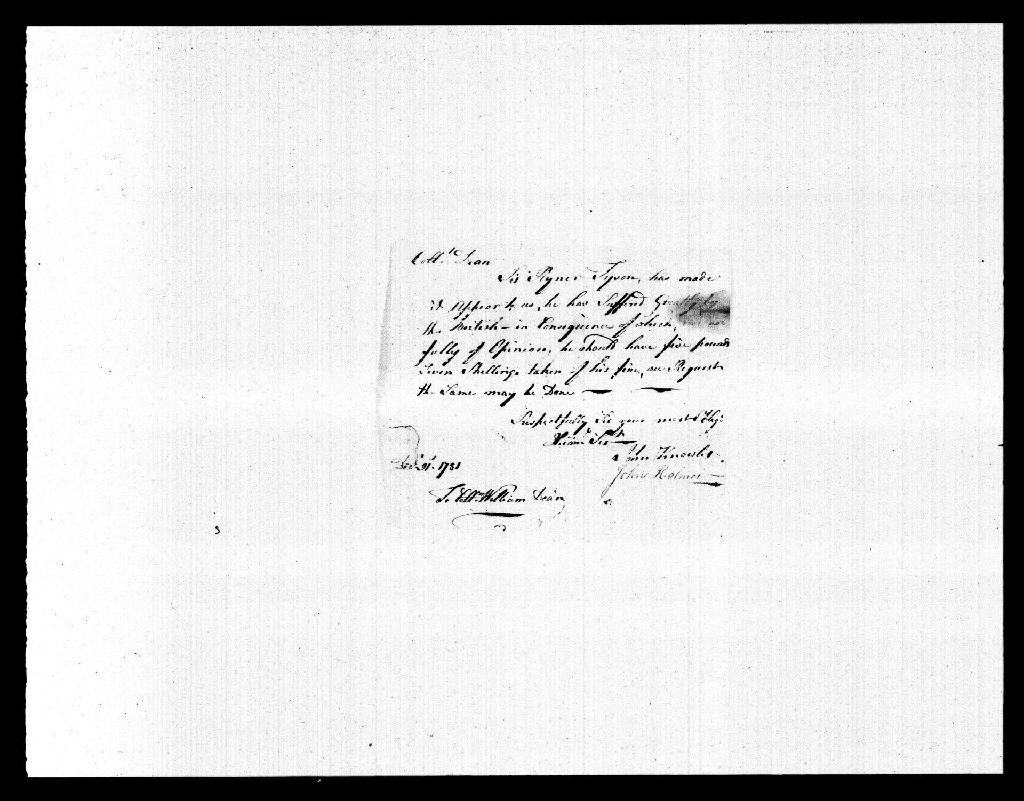 Coll.o Dean
Sir Ryner Tyson, has made
it Appear to us, he has Suffred Greatly by
the British – in Consequence of which, we
fully of Opinion, he should have five pounds
Seven Shillings taken of his fine, we Request
the Same may be Done
Respectfully Sir your most Obj.
Hum. Ser.ts
John Holmes
Dec. 31. 1781
To Coll. William Dean